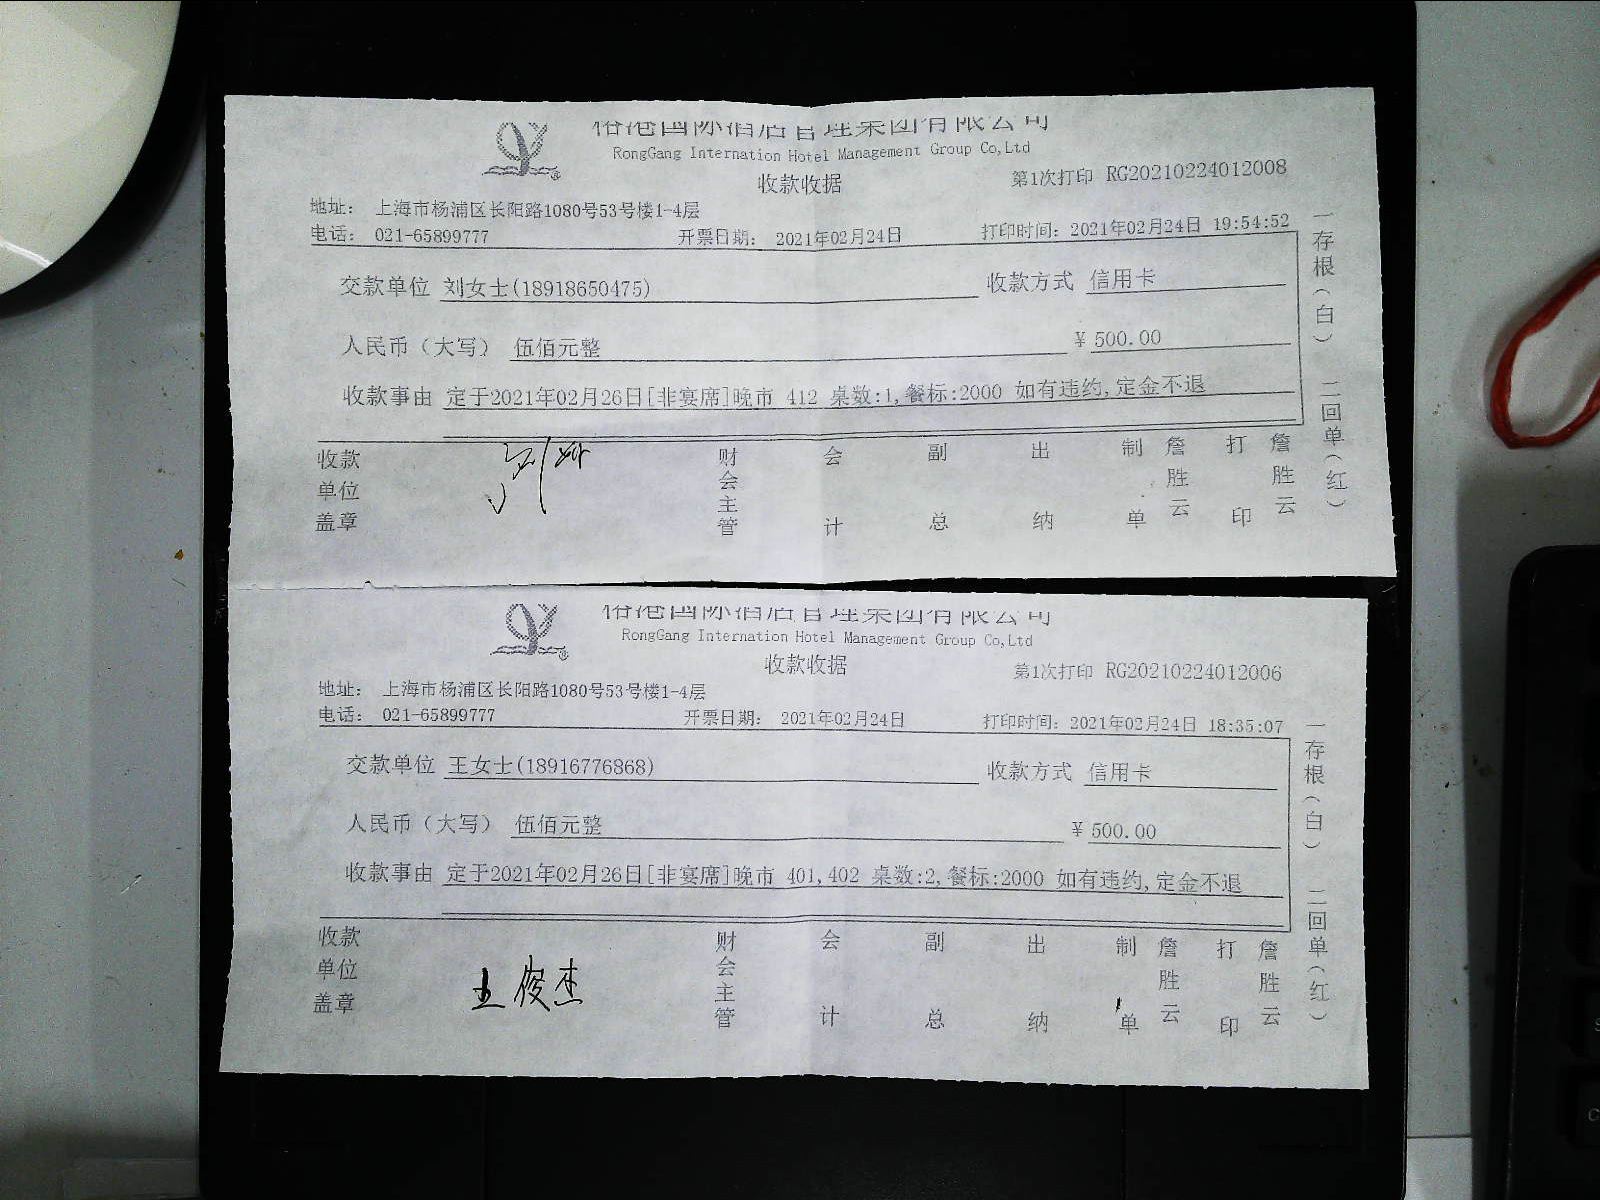 国际酒店管理集团有限公司
RongGang Internation Hotel Management Group Co,Ltd
收款收据
第1次打印 RG20210224012008
地址： 上海市杨浦区长阳路1080号53号楼1-4层
电话： 021-65899777 开票日期： 2021年02月24日 打印时间：2021年02月24日 19:54:52
交款单位 刘女士(18918650475) 收款方式 信用卡
人民币（大写） 伍佰元整 ￥500.00
收款事由 定于2021年02月26日[非宴席]晚市 412 桌数:1,餐标:2000 如有违约,定金不退
收款单位盖章 刘 财会主管 会计 副总 出纳 制单 詹胜云 打印 詹胜云
一存根（白） 二回单（红）
国际酒店管理集团有限公司
RongGang Internation Hotel Management Group Co,Ltd
收款收据
第1次打印 RG20210224012006
地址： 上海市杨浦区长阳路1080号53号楼1-4层
电话： 021-65899777 开票日期： 2021年02月24日 打印时间：2021年02月24日 18:35:07
交款单位 王女士(18916776868) 收款方式 信用卡
人民币（大写） 伍佰元整 ￥500.00
收款事由 定于2021年02月26日[非宴席]晚市 401,402 桌数:2,餐标:2000 如有违约,定金不退
收款单位盖章 王俊杰 财会主管 会计 副总 出纳 制单 詹胜云 打印 詹胜云
一存根（白） 二回单（红）